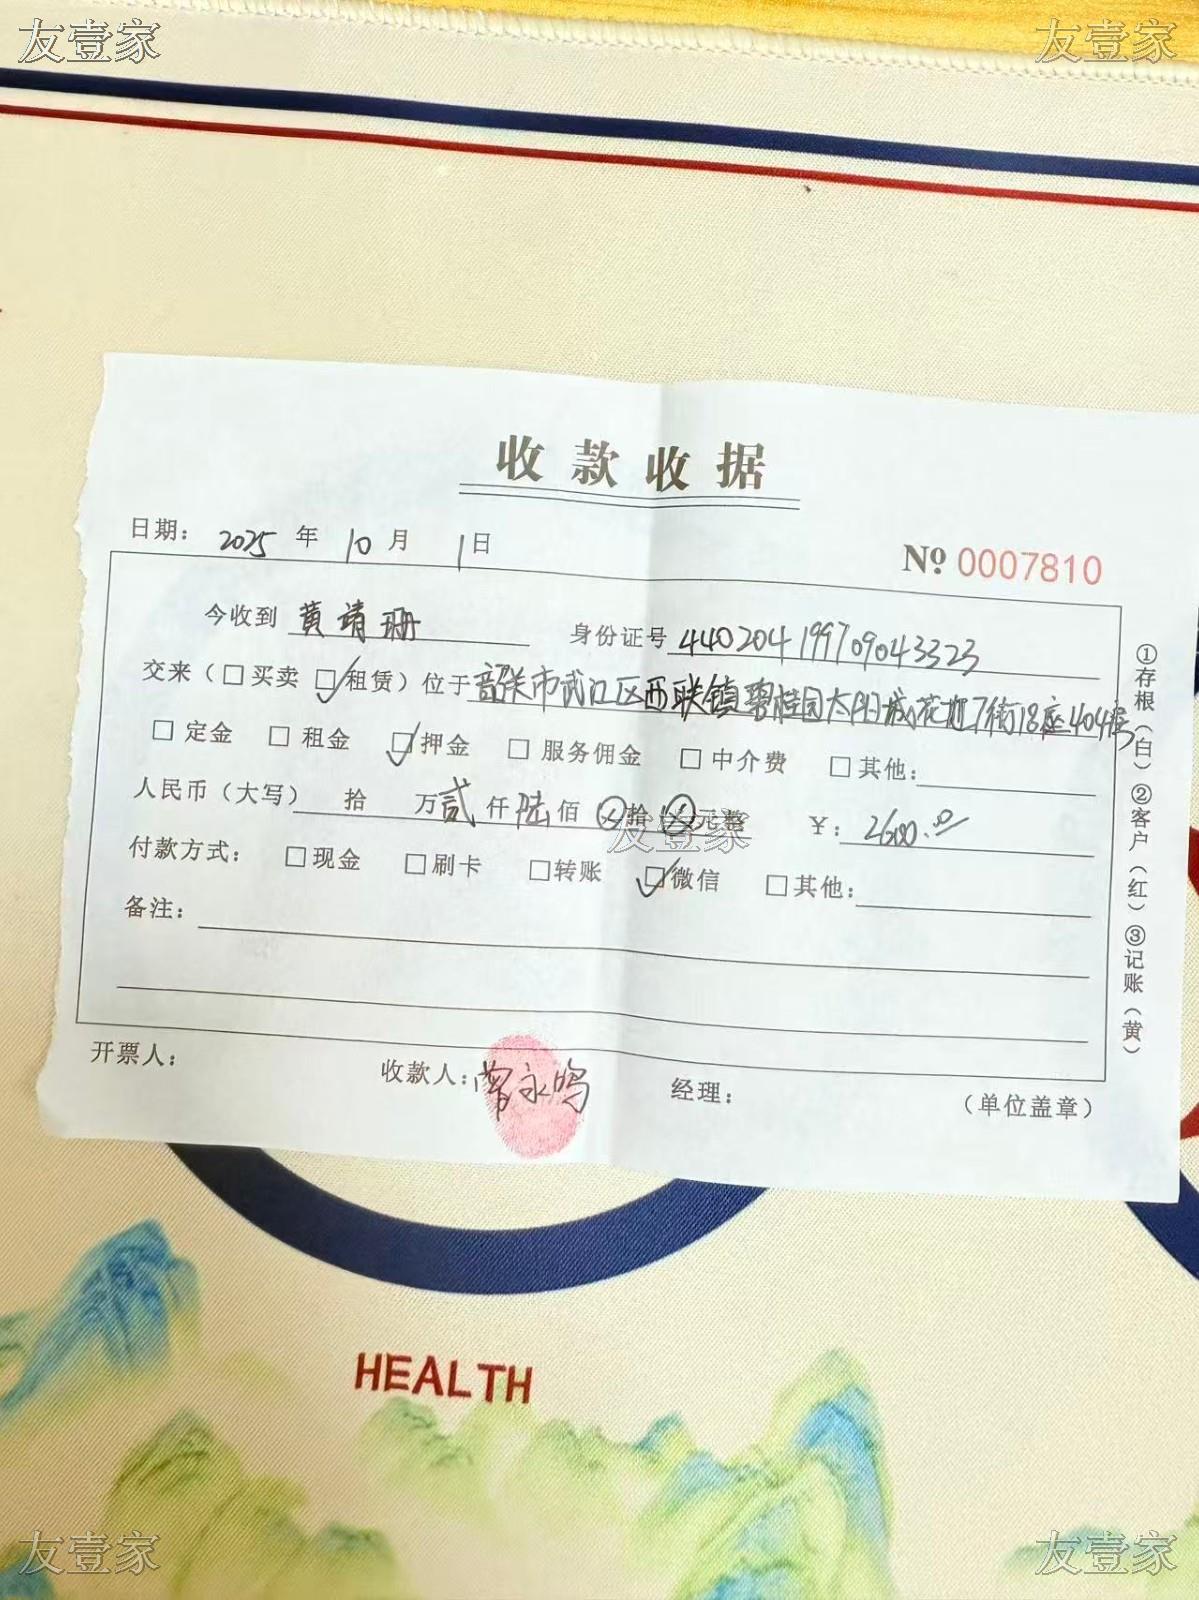 友壹家 友壹家
收款收据
日期： 2025 年 10 月 1 日
№ 0007810
今收到 黄靖珊 身份证号 440204199709043323
交来（□买卖 ☑租赁）位于 韶关市武江区西联镇碧桂园太阳城花迎7街18座404号
□ 定金 □ 租金 ☑ 押金 □ 服务佣金 □ 中介费 □ 其他：
人民币（大写） 拾 万 贰 仟 陆 佰 ⊗ 拾 ⊗ 元整 ￥： 2600.00
友壹家
付款方式： □现金 □刷卡 □转账 ☑微信 □其他：
备注：
①存根（白）②客户（红）③记账（黄）
开票人： 收款人：曾永鸣 经理： （单位盖章）
HEALTH
友壹家 友壹家